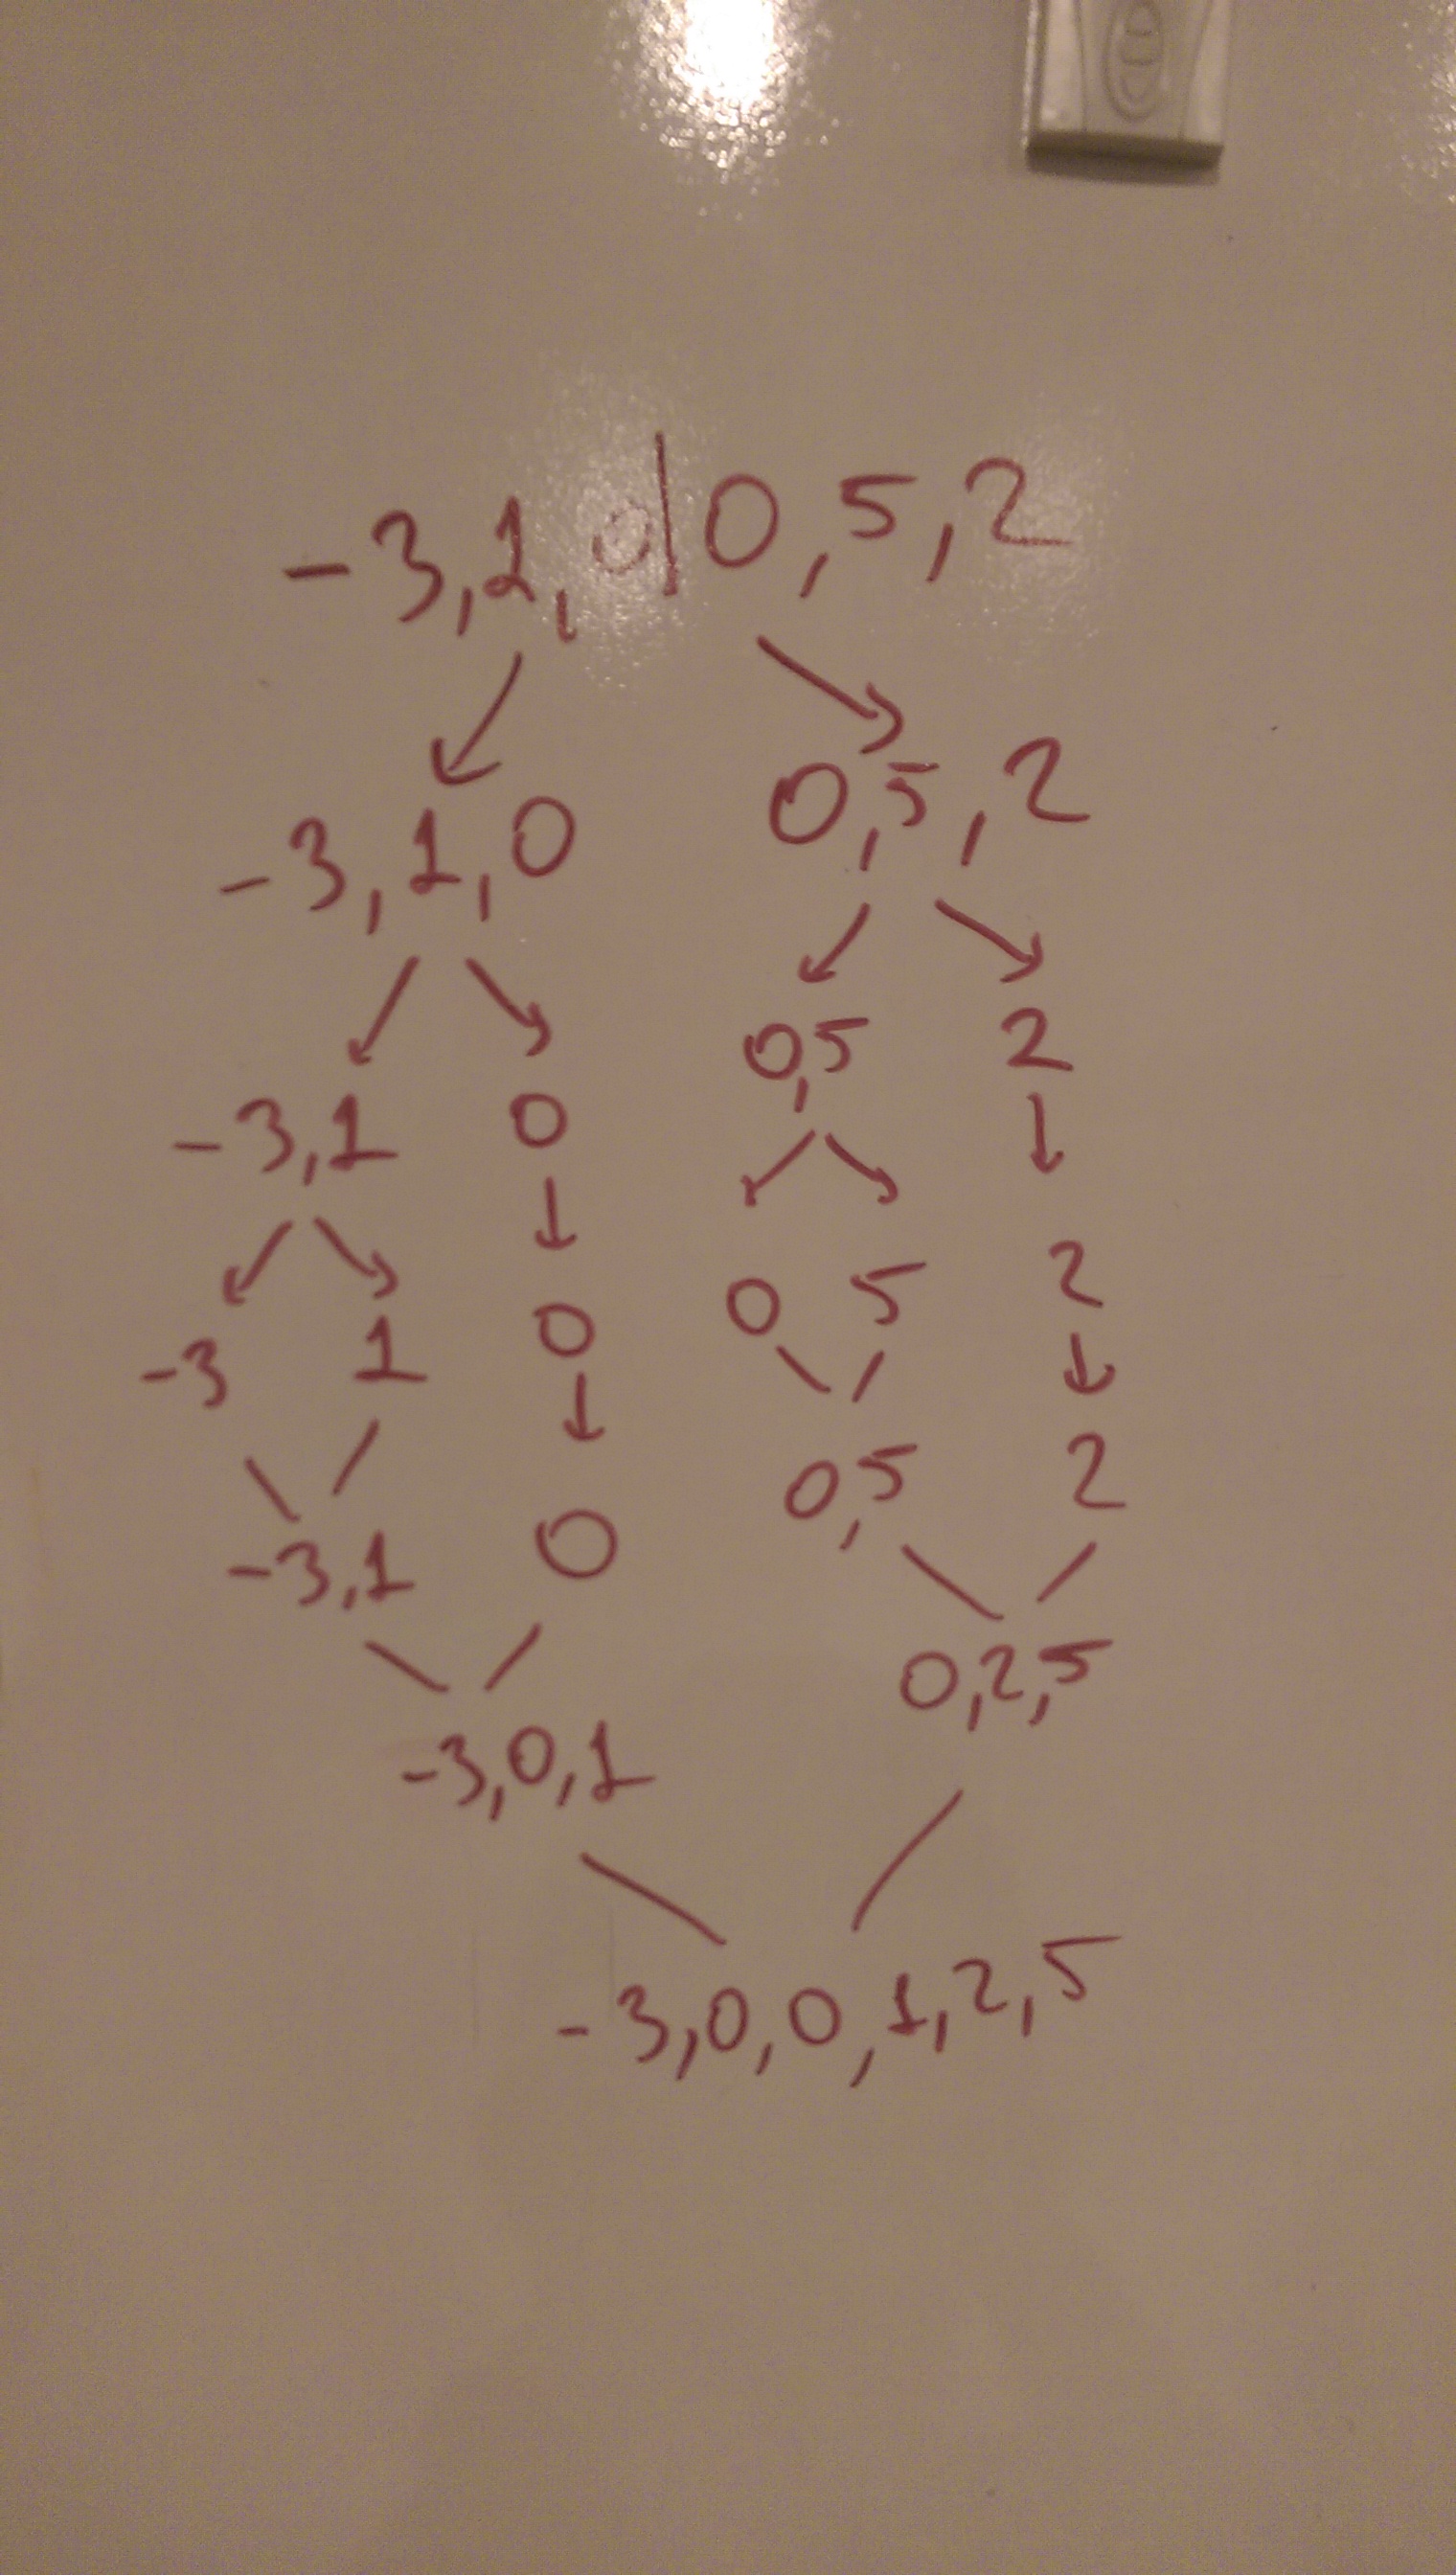 -3,1,0|0,5,2
-3,1,0 0,5,2
-3,1 0 0,5 2
-3 1 0 0 5 2
-3,1 0 0,5 2
-3,0,1 0,2,5
-3,0,0,1,2,5